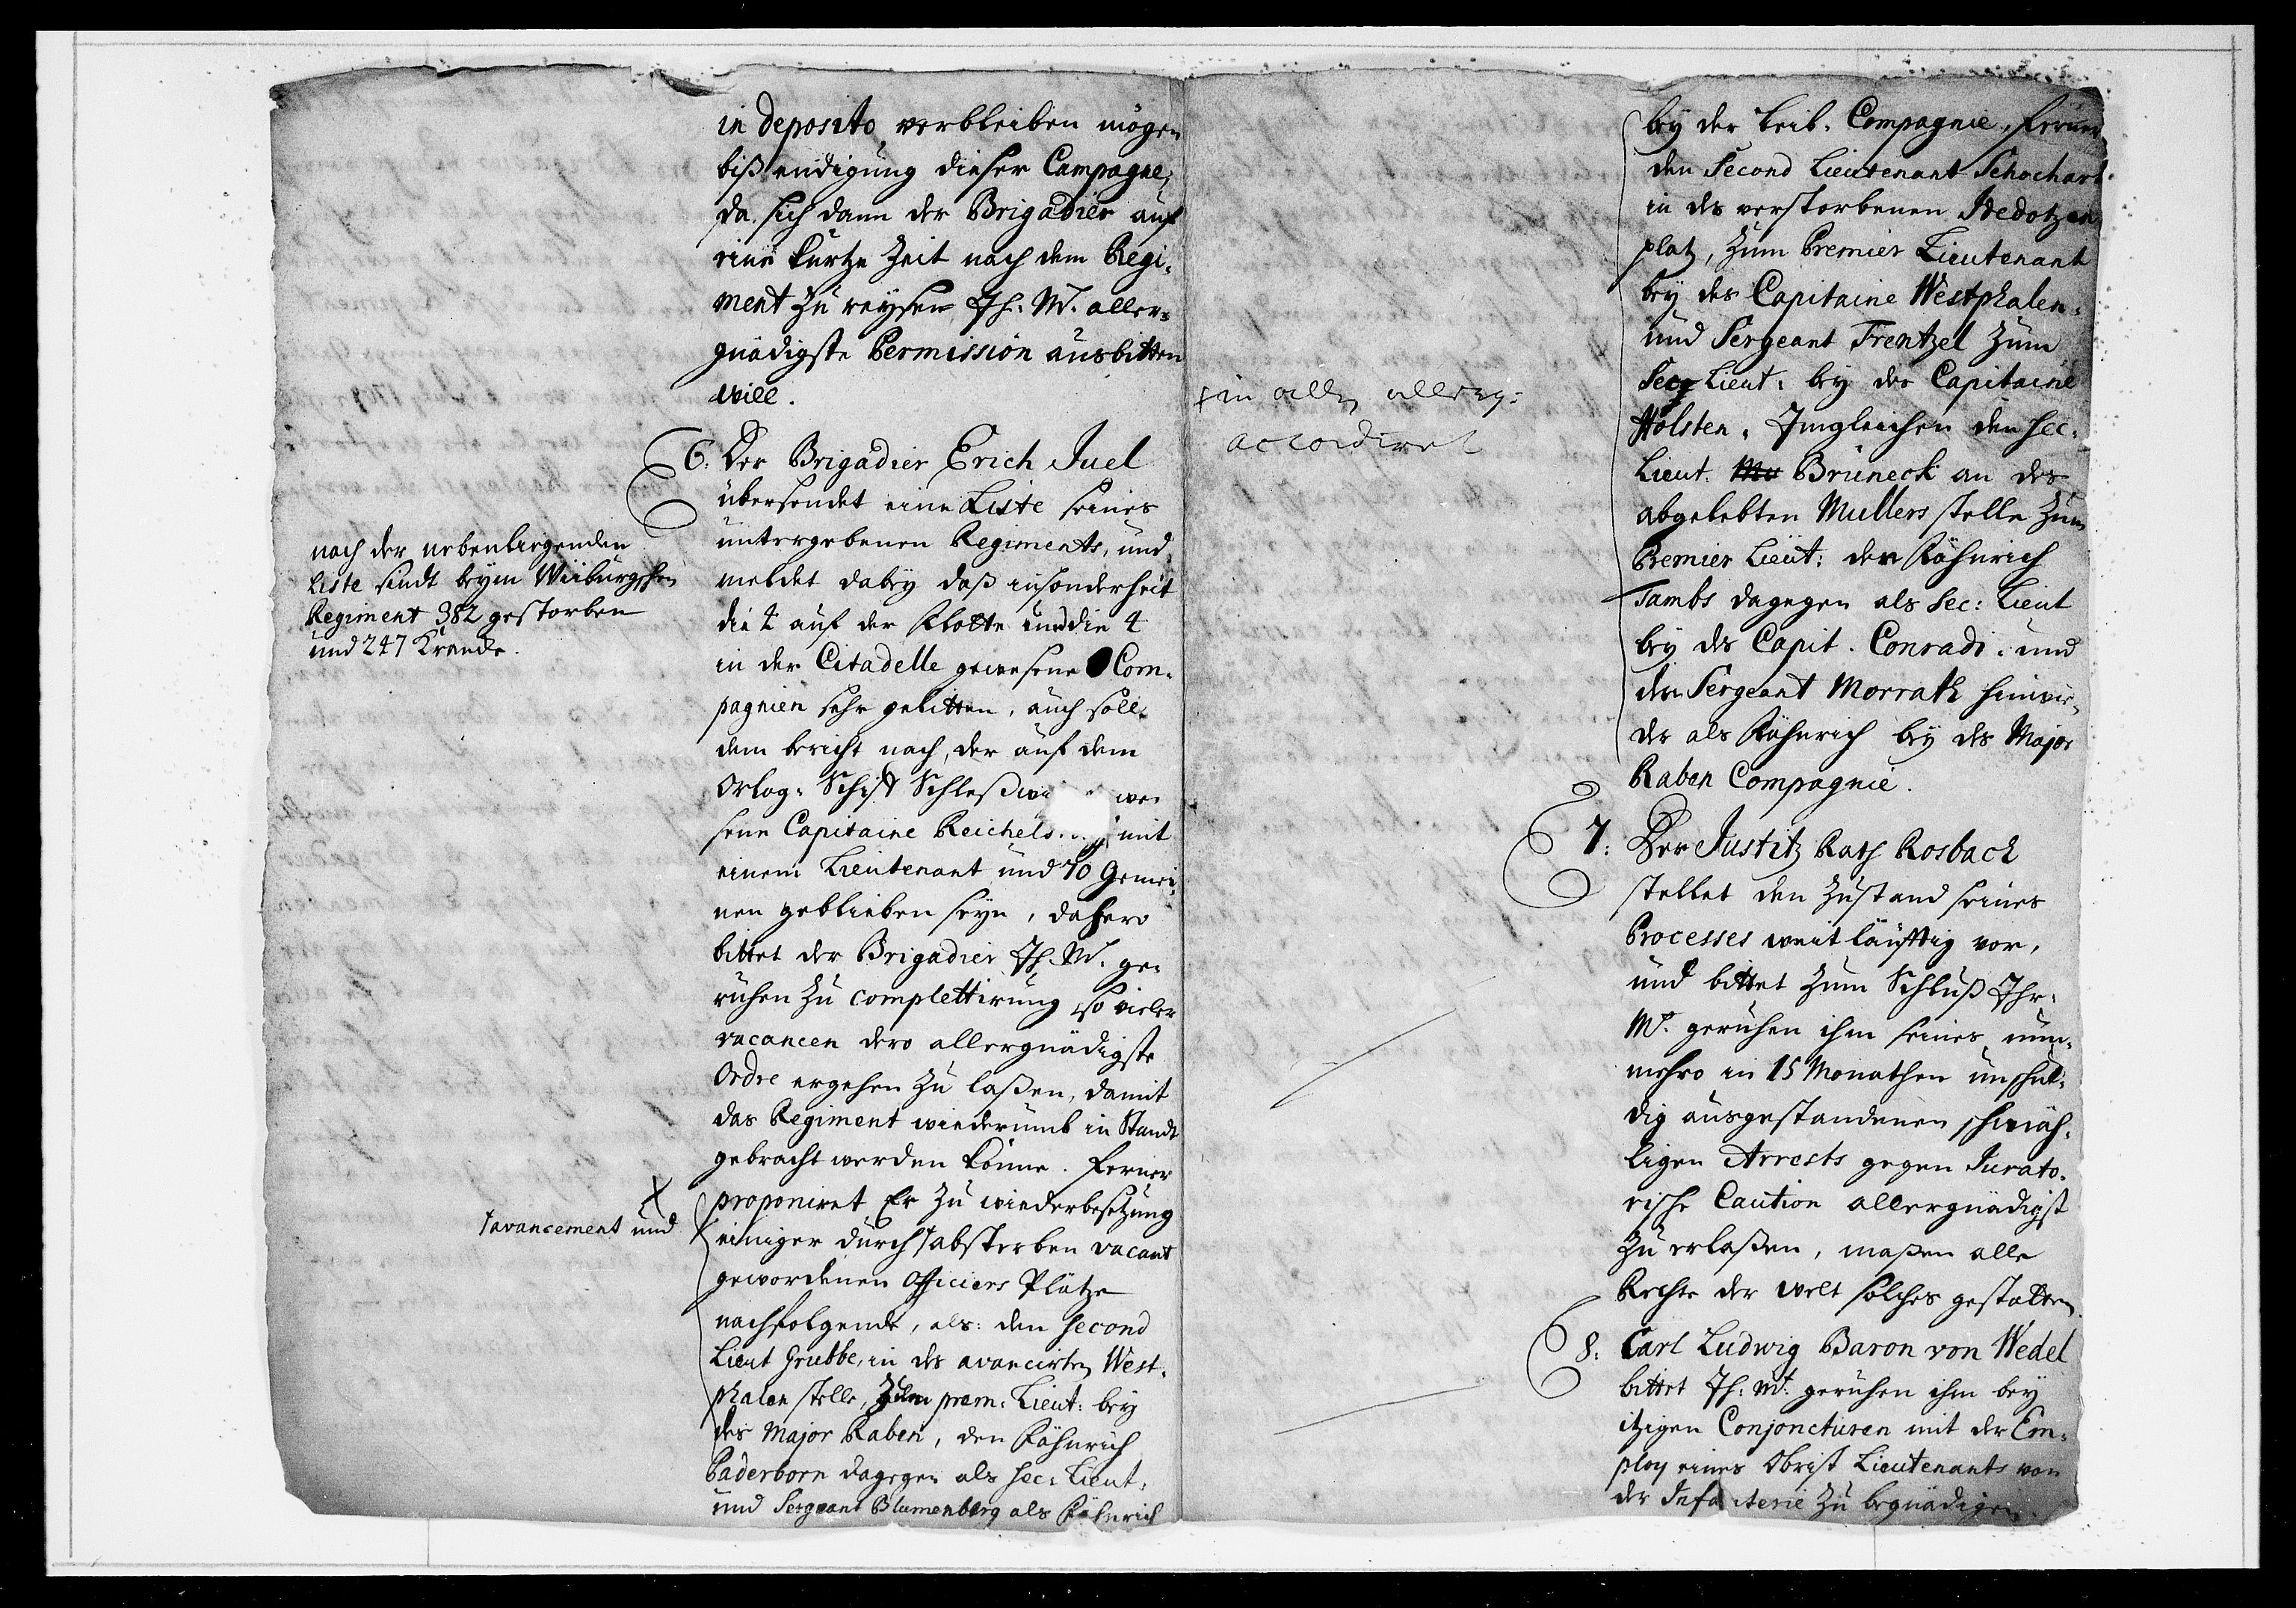 in deposito verbleiben mögen
biß endigung dieser Campagne,
da sich dann der Brigadier auf
eine kurtze Zeit nach dem Regi-
ment zu reysen Ih: Mt. aller-
gnädigste Permission ausbitten
will.
6. Der Brigadier Erich Juel
übersendet eine Liste seines
untergebenen Regiments, und
meldet dabey daß insonderheit
die 4 auf der Flotte und die 4
in der Citadelle gewesene Com-
pagnien sehr gelitten, auch soll
dem bericht nach, der auf dem
Orlog-Schiff Schleßwi we-
sene Capitaine Reichels mit
einem Lieutenant und 70 Gemei-
nen geblieben seyn, dahero
bittet der Brigadier Ih. Mt. ge-
ruhen zu complettirung so vieler
vacancen dero allergnädigste
Ordre ergehen zu laßen, damit
das Regiment wiederumb in Standt
gebracht werden könne. Ferner
proponiret Er zu wiederbesetzung
einiger durch † absterben vacant
gewordenen Officiers Plätze
nachfolgende, als: den Second
Lieut Grubbe, in des avancirten West-
phalen stelle, zum prem. Lieut: bey
des Major Raben, den Fähnrich
Paderborn dagegen als Sec: Lieut:
und Sergeant Blumenberg als Fähnrich
nach der nebenliegenden
Liste sindt beym Wiiburgschen
Regiment 382 gestorben
und 247 Krancke.
† avancement und
in allen allergn:
accordiret
bey der Leib-Compagnie, ferner
den Second Lieutenant Schochart
in des verstorbenen
platz, zum Premier Lieutenant
bey des Capitaine Westphalen-
und Sergeant Frentzel zum
Sec: Lieut: bey des Capitaine
Holsten. Imgleichen den Sec:
Lieut. Brüneck an des
abgelebten Mullers stelle zum
Premier Lieut: den Fähnrich
Tambs dagegen als Sec: Lieut
bey des Capit. Conradi. und
den Sergeant Morrath hinwie-
der als Fähnrich bey des Major
Raben Compagnie.
7. Der Justitz Rath Rosback
stellet den Zustand seines
Processes weitläufftig vor,
und bittet zum Schluß Ihr:
Mt. geruhen ihm seines nun-
mehro in 15 Monathen unschul-
dig ausgestandenen schmäh-
ligen Arrests gegen Jurato-
rische Caution allergnädigst
zu erlaßen, maßen alle
Rechte der Welt solches gestatten
8. Carl Ludwig Baron von Wedel
bittet Ih: Mt: geruhen ihm bey
itzigen Conjoncturen mit der Em-
ploy eines Obrist Lieutenants von
der Infanterie zu begnädigen.